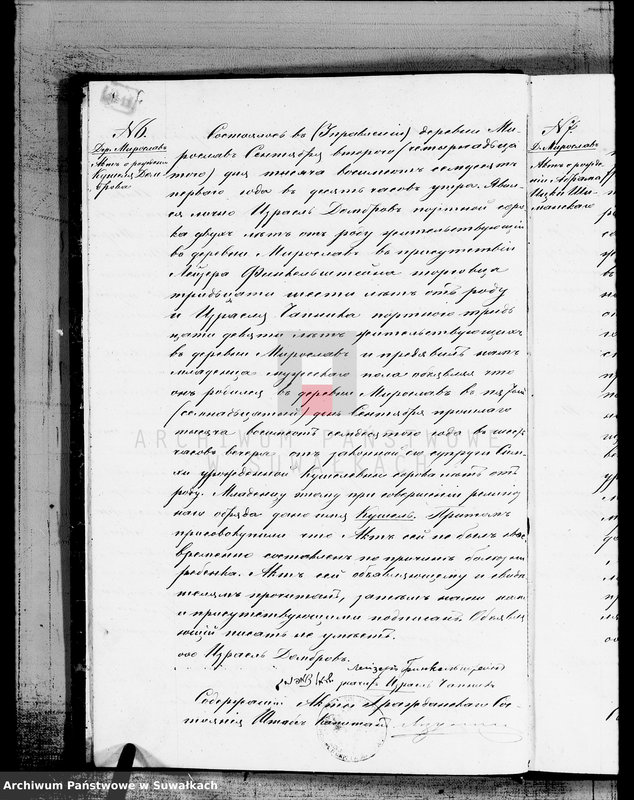 N 6.
Дер. Мирославъ
Актъ о рожденіи
Кушеля Дом
брова
Состоялось въ (Управленіи) деревни Ми-
рославъ Сентября второго (четырнадца
того) дня тысяча восемьсотъ семьдесятъ
перваго года въ десять часовъ утра. Явил
ся лично Израель Домбровъ портной соро
ка двухъ лѣтъ отъ роду жительствующій
въ деревни Мирославъ въ присутствіи
Лейзера Финкельштейна торговца
тридцати шести лѣтъ отъ роду
и Израеля Чапника портного тридь
цати девяти лѣтъ жительствующихъ
въ деревни Мирославъ и предявилъ намъ
младенца мужескаго пола объявляя что
онъ родился въ деревни Мирославъ въ пятый
(семнадцатый) день Сентября прошлаго
тысяча восемсотъ семьдесятого года въ шесть
часовъ вечера отъ законной его супруги Си
хи урожденной Кушелевичъ сорока лѣтъ отъ
роду. Младенцу этому при совершеніи религіоз
наго обряда дано имя Кушель. Притомъ
присовокупили что Актъ сей не былъ свое
временно составленъ по причинѣ болезни
ребенка. Актъ сей объявляющему и свидѣ
телямъ прочитанъ, затѣмъ нами нами
и присутствующими подписанъ. Объявля
ющій писать не умѣетъ.
ооо Израель Домбровъ.
Лейзеръ Финкельштейнъ
Израель Чапникъ
Содержащій Акты Гражданскаго Со-
стоянія Штабсъ Капитанъ
N 7
Д. Мирославъ
Актъ о рожде
ніи Абрама
Ицки Ши
манскаго
ARCHIWUM PAŃSTWOWE
W SUWAŁKACH
Archiwum Państwowe w Suwałkach